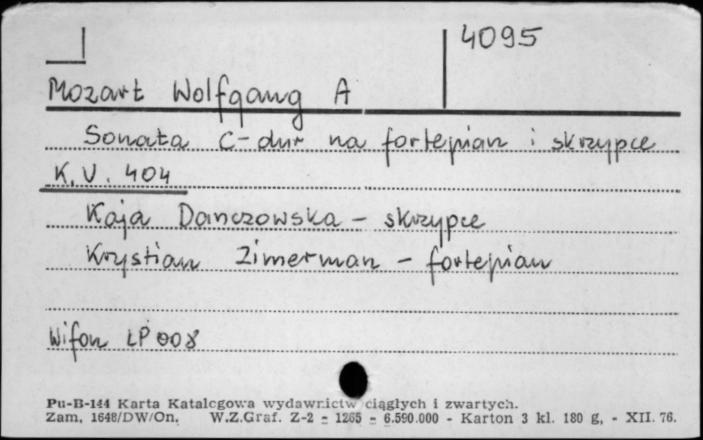 4095
Mozart Wolfgang A
Sonata C-dur na fortepian i skrzypce
K.V. 404
Kaja Danczowska - skrzypce
Krystian Zimerman - fortepian
Wifon LP 008
Pu-B-144 Karta Katalogowa wydawnictw ciągłych i zwartych.
Zam. 1648/DW/On. W.Z.Graf. Z-2 - 1265 - 6.590.000 - Karton 3 kl. 180 g. - XII. 76.